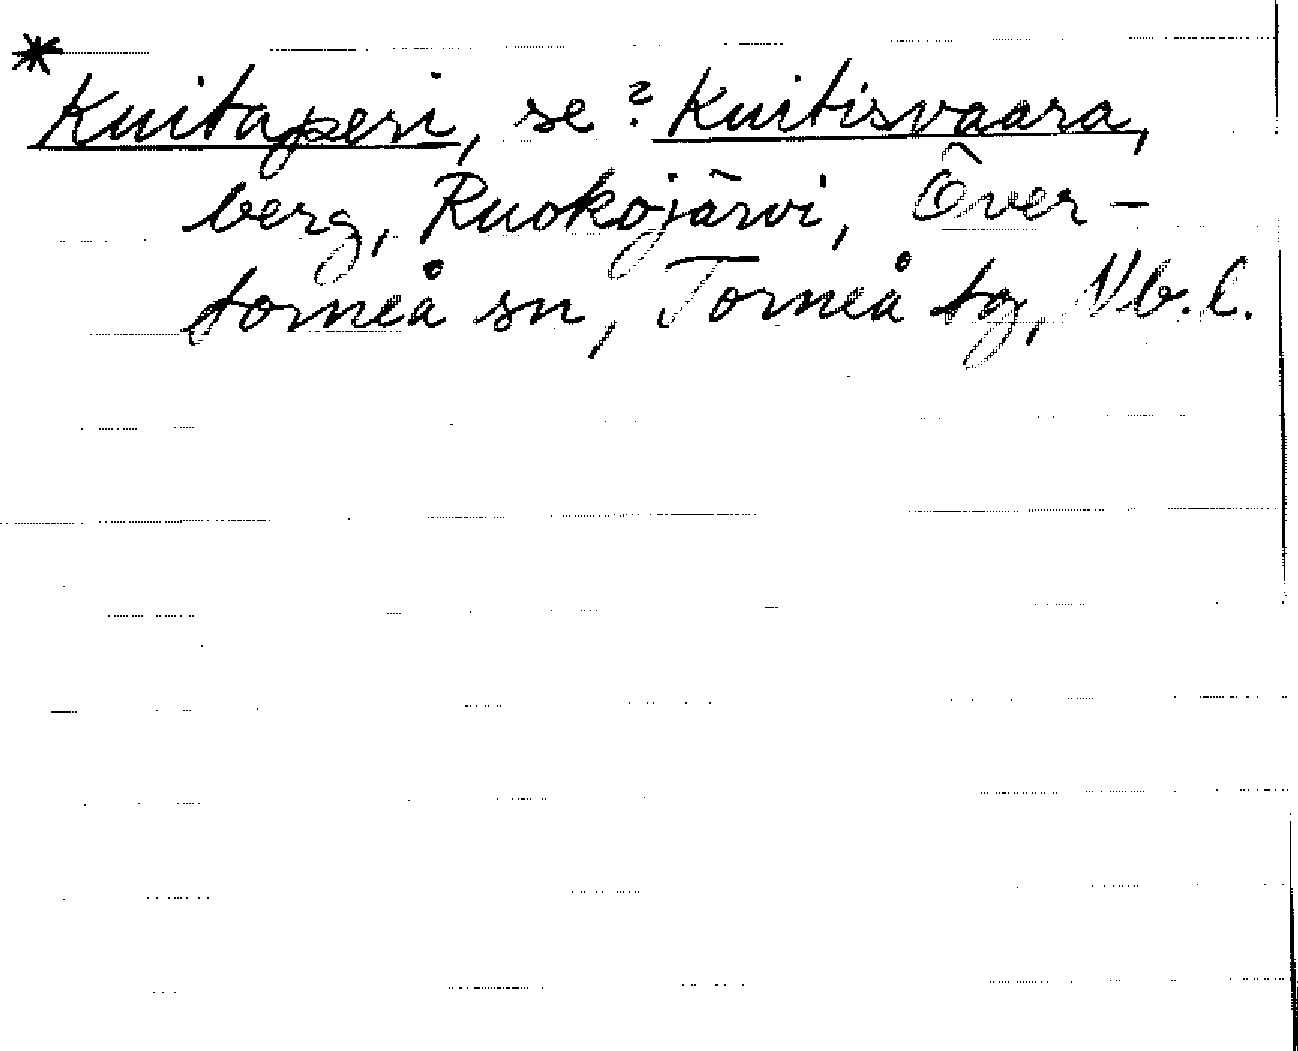 *
Kuitaperi, se ? Kuitisvaara,
berg, Ruokojärvi, Över-
torneå sn, Torneå tg, Nb.l.